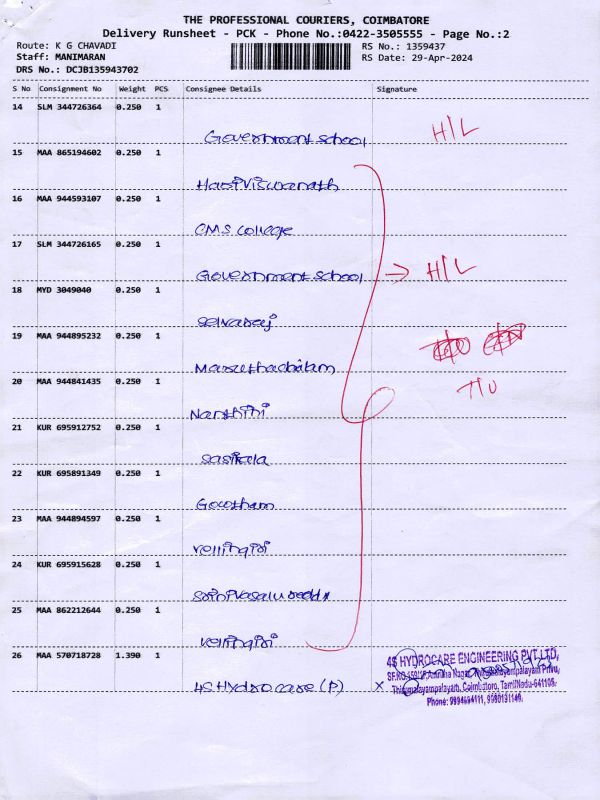 THE PROFESSIONAL COURIERS, COIMBATORE
Delivery Runsheet - PCK - Phone No.:0422-3505555 - Page No.:2
Route: K G CHAVADI
RS No.: 1359437
Staff: MANIMARAN
RS Date: 29-Apr-2024
DRS No.: DCJB135943702
S No Consignment No Weight PCS Consignee Details Signature
14 SLM 344726364 0.250 1
Government school H/L
15 MAA 865194602 0.250 1
Hariviswanath
16 MAA 944593107 0.250 1
CMS college
17 SLM 344726165 0.250 1
Government school → H/L
18 MYD 3049040 0.250 1
selvaraj
19 MAA 944895232 0.250 1
Maruthachalam
20 MAA 944841435 0.250 1
Nanthini
21 KUR 695912752 0.250 1
sasikala
22 KUR 695891349 0.250 1
Gowtham
23 MAA 944894597 0.250 1
vellingiri
24 KUR 695915628 0.250 1
25 MAA 862212644 0.250 1
vellingiri
26 MAA 570718728 1.390 1
4S Hydrocare (P) X
4S HYDROCARE ENGINEERING PVT LTD,
Thirumalayampalayam, Coimbatore, TamilNadu-641105.